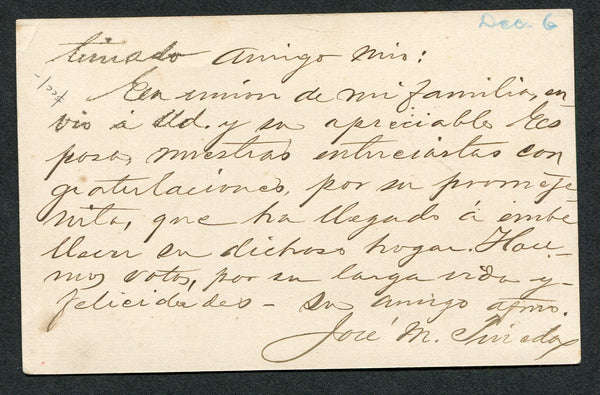 Dec. 6
timado amigo mio:
En union de mi familia, en
vio á Ud. y su apreciable Es
posa, nuestras entuciastas con
gratulaciones, por su promoje
nita, que ha llegado á embe
llecer su dichoso hogar. Hace-
mos votos, por su larga vida y
felicidades - Su amigo afmo.
José M. Pineda